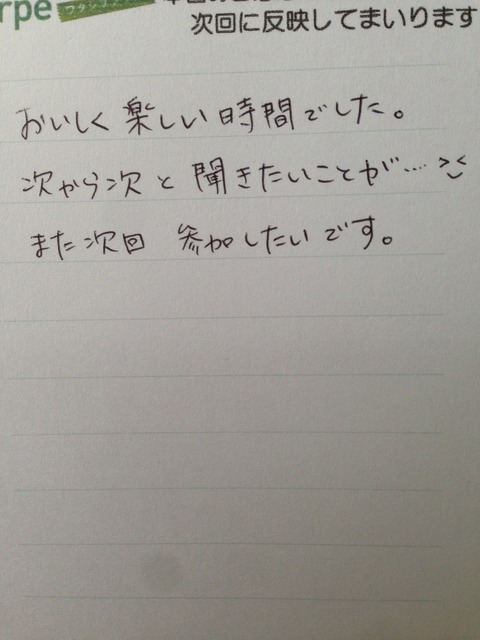 rpe
次回に反映してまいります
おいしく楽しい時間でした。
次から次と聞きたいことが…
また次回 参加したいです。